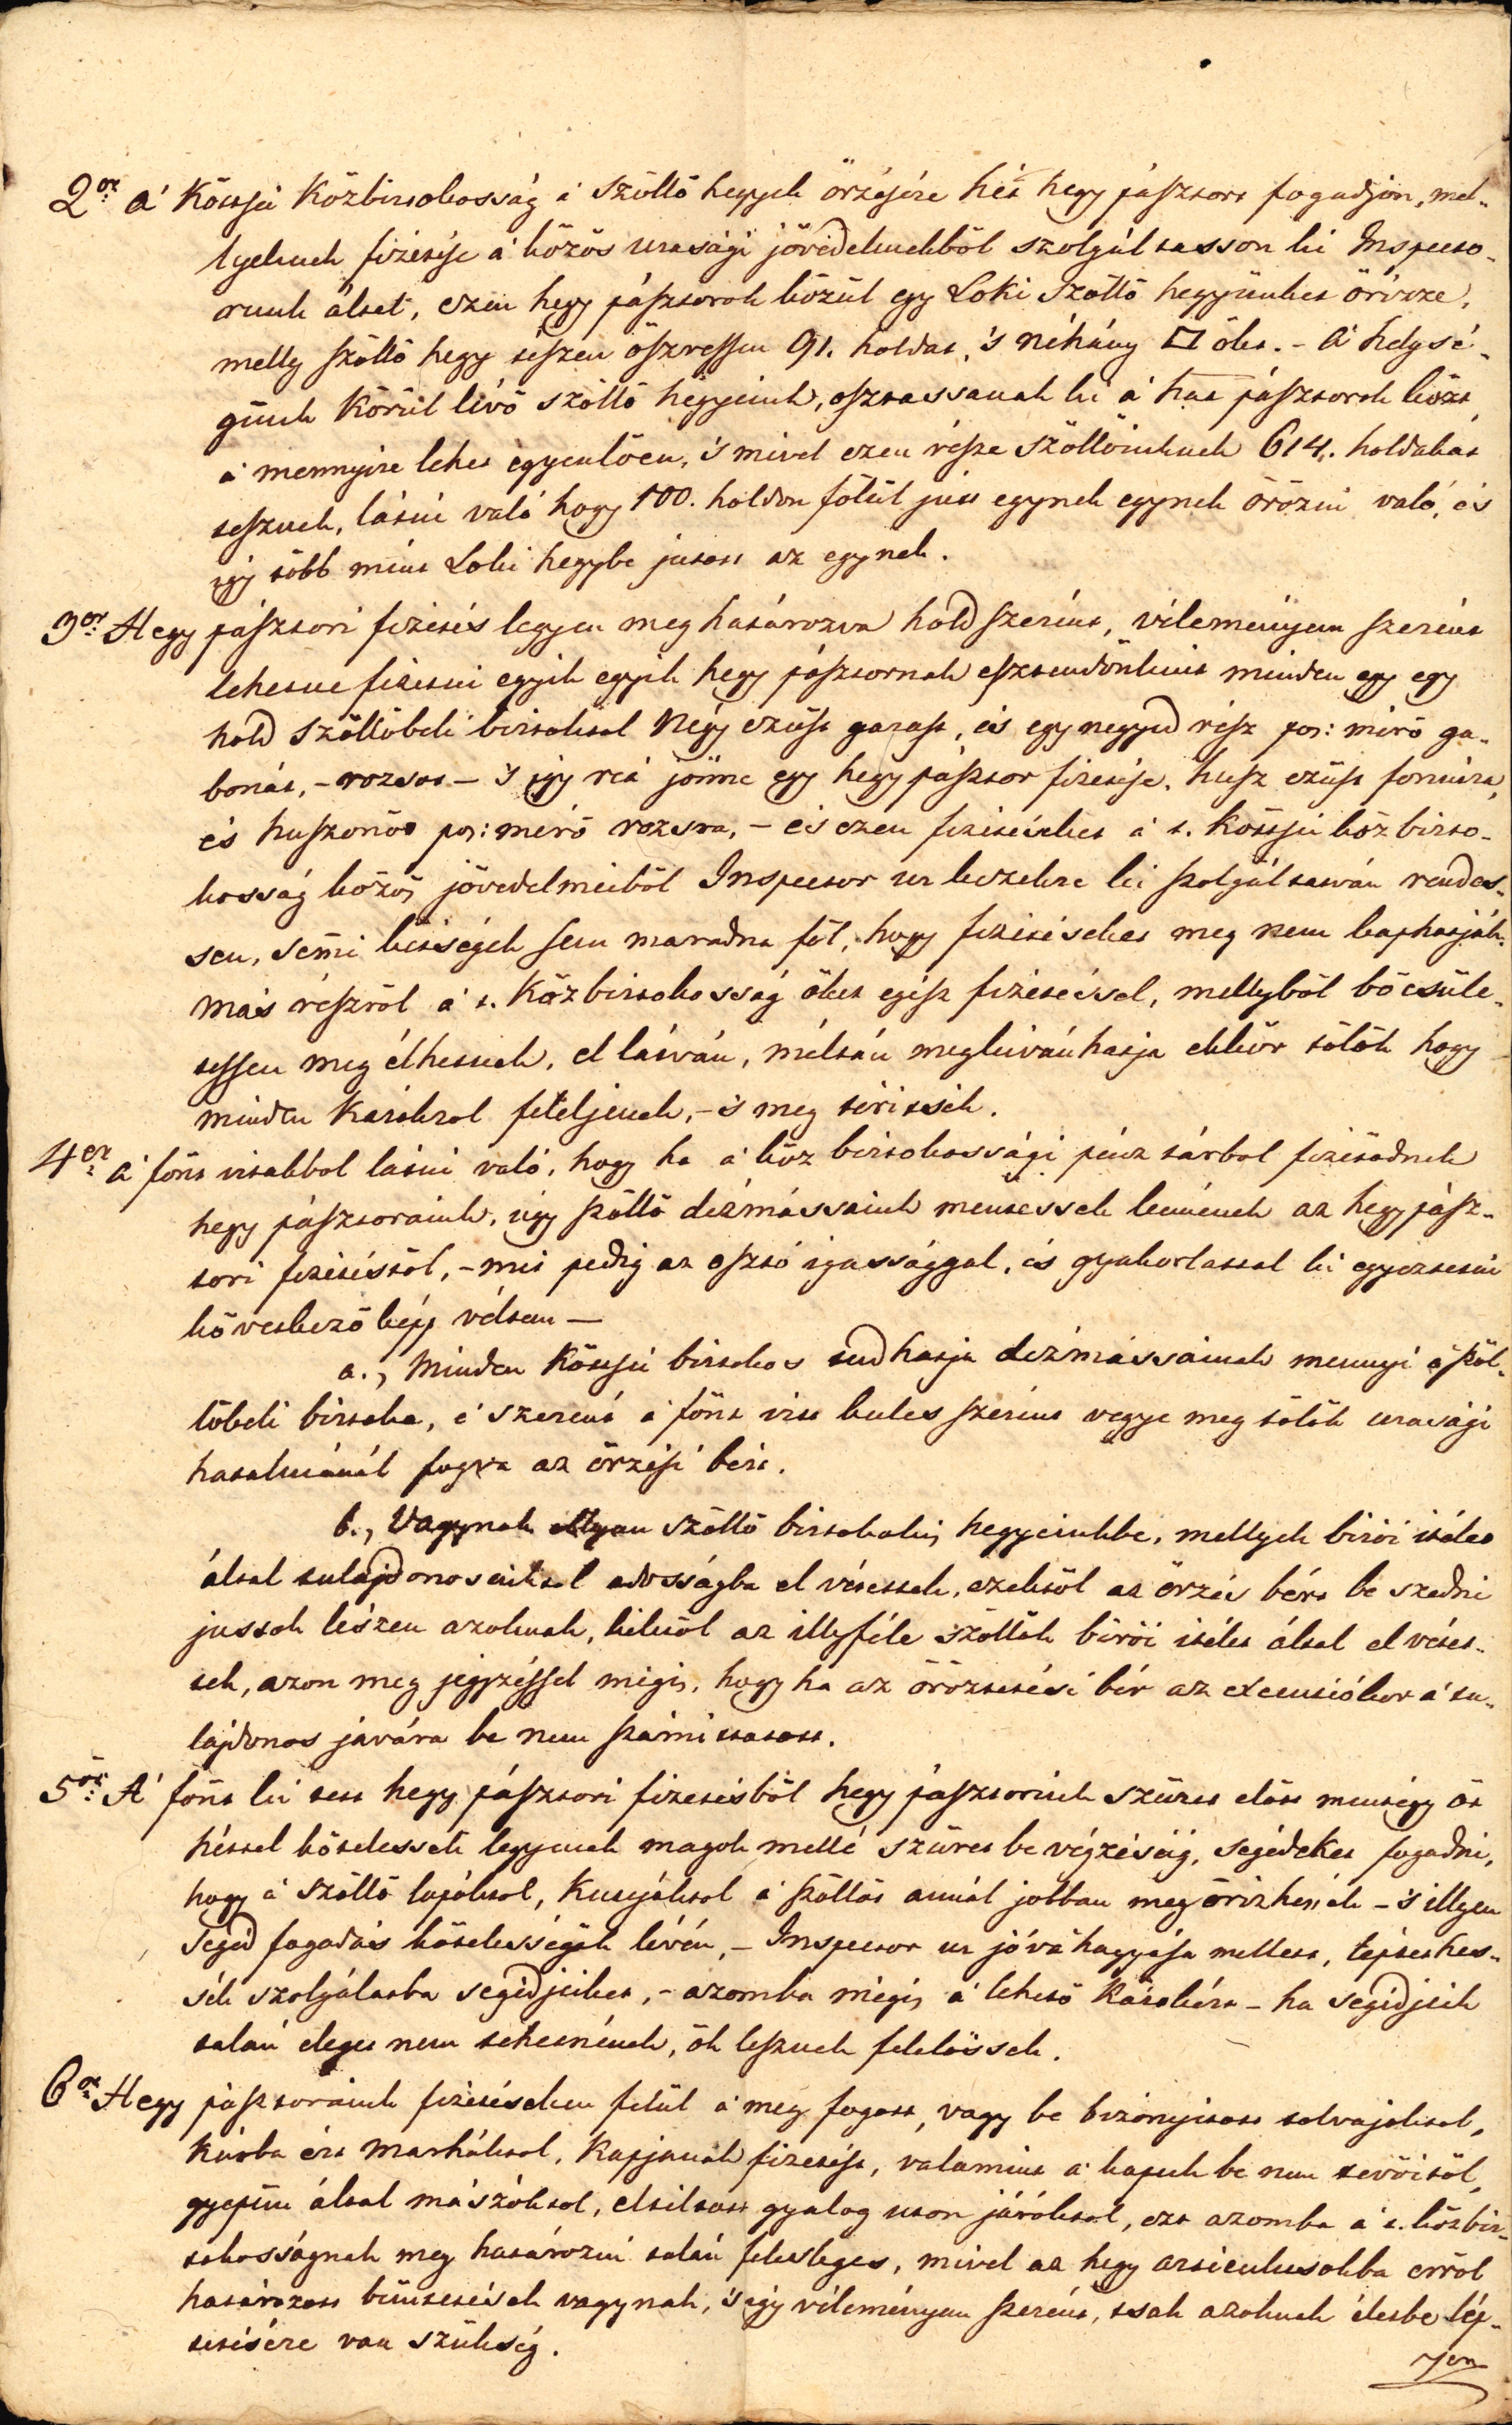 2or a' Köttsei Közbirtokosság a' Szöllö hegyek örzésére hét hegy pásztort fogadjon, mel-
lyeknek fizetése a' közös urasági jövedelmekböl szolgáltasson ki Inspecto-
runk által, ezen hegy pásztorok közül egy Loki Szöllö hegyünket örizze,
melly szöllö hegy teszen öszvessen 91. holdat, 's néhány □ ölet. - A' helysé-
günk Körül lévö szöllö hegyeink, osztassanak ki a' hat pásztorok közt
a' mennyire lehet egyenlöen, 's mivel ezen része Szöllöinknek 614. holdakat
tesznek, látni való hogy 100. holdon fölül jut egynek egynek örözni való, és
igy több mint Loki hegybe jutott az egynek.
3or Hegy pásztori fizetés legyen meg határozva hold szerint, véleményem szerint
lehetne fizetni egyik egyik hegy pásztornak esztendönkint minden egy egy
hold Szöllöbeli birtoktol Négy ezüst garast, és egy negyed rész pos: mérö ga-
bonát, - rozsot - 's igy reá jönne egy hegy pásztor fizetése, husz ezüst forintra,
és huszonöt pos: mérö rozsra, - és ezen fizetéseket a' t. Köttsei közbirto-
kosság közös jövedelmeiböl Inspector ur kezekre ki szolgáltatván rendes-
sen, semi kétségek sem maradna föl, hogy fizetéseket meg nem kaphatják.
más részröl a' t. Közbirtokosság öket egész fizetéssel, mellyböl böcsüle-
tessen meg élhetnek, el látván, méltán megkivánhatja ekkor tölök hogy
minden Károkrol feleljenek, - 's meg térittsék.
4er a' fönt irtakbol látni való, hogy ha a' köz birtokossági pénz tárbol fizetödnek
hegy pásztoraink, úgy szöllö dézmássaink mentessek lennének az hegy pász-
tori fizetéstöl, - mit pedig az osztó igassággal, és gyakorlattal ki egyeztetni
következö képp véltem -
a., Minden Köttsei birtokos tudhatja dézmássainak mennyi a' szöl-
löbeli birtoka, e' szerént a' fönt irtt kules szerint vegye meg tölök urasági
hatalmánál fogva az örzési bért.
b., Vagynak ollyan szöllö birtokok is hegyeinkbe, mellyek birói itélet
által tulajdonosaiktol adosságba el vétettek, ezektöl az örzés bért be szedni
jussok lészen azoknak, kiknöl az illyféle szöllök birói itélet által el vétet-
tek, azon meg jegyzéssel mégis, hogy ha az öröztetési bér az executiókor a' tu-
lajdonos javára be nem számittatott.
5ör A' fönt ki tett hegy pásztori fizetésböl hegy pásztorink szüret elött mintegy öt
héttel kötelessek legyenek magok mellé szüret be végzéséig, segédeket fogadni,
hogy a' szöllö lopóktol, kutyáktol a' szöllöt annál jobban meg örizhessék - 's illyen
segéd fogadás kötelességök lévén, - Inspector ur jóváhagyása mellett, léptethes-
sék szolgálatba segédjeiket, - azomba mégis a' lehetö Károkért - ha segédjeik
talán eleget nem tehetnének, ök lesznek felelössek.
6or Hegy pásztoraink fizetéseken felül a' meg fogott, vagy be bizonyitott tolvajoktol,
Kárba ért Marháktol, Kapjanak fizetést, valamint a' kapuk be nem tevöitöl,
gyepün által mászóktol, eltiltott gyalog uton járóktol, ezt azomba a' t. közbir-
tokosságnak meg határozni talán felesleges, mivel az hegy articulusokba erröl
határozott büntetések vagynak, 's igy véleményem szerént, tsak azoknak életbe lép-
tetésére van szükség.